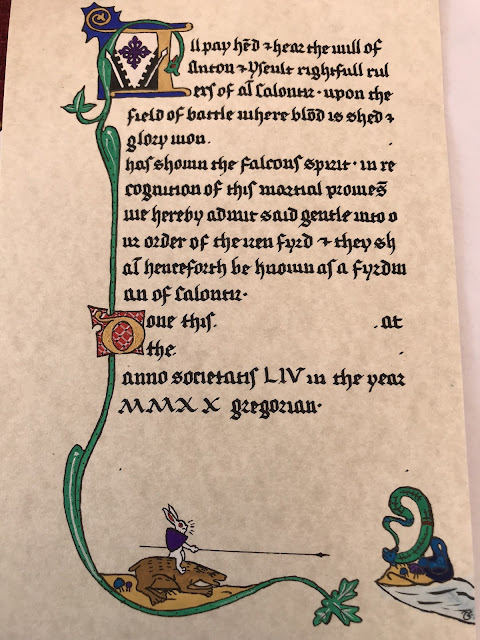 All pay hēd ⁊ hear the will of
Anton ⁊ Yseult rightfull rul
ers of al̄ Calontir · upon the
field of battle where blōd is shed ⁊
glory won .
has shown the falcons spirit · in re
cognition of this martial prowes̄
we hereby admit said gentle into o
ur order of the iren fyrd ⁊ they sh
al̄ henceforth be known as a fyrdm
an of Calontir·
Done this. . at
the
anno societatis LIV in the year
MMXX gregorian·